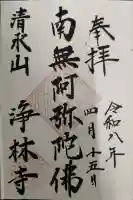 奉拝
令和八年
四月十五日
南無阿弥陀佛
清水山
浄林寺